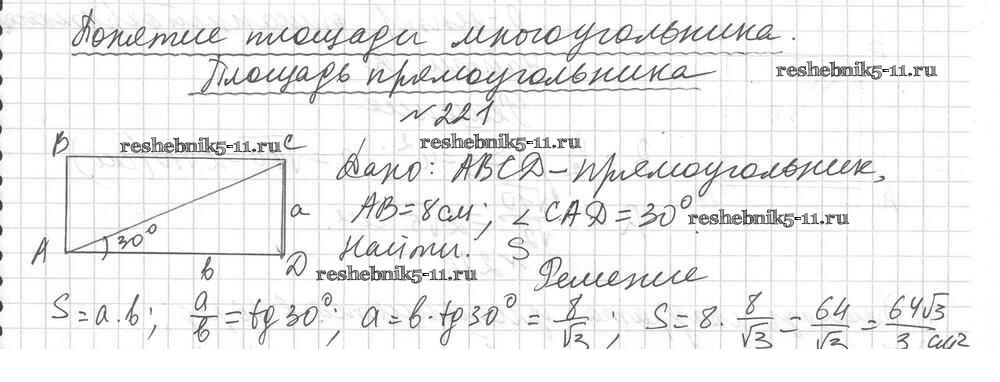 Понятие площади многоугольника.
Площадь прямоугольника
reshebnik5-11.ru
№221
B reshebnik5-11.ru C reshebnik5-11.ru
Дано: ABCD – прямоугольник,
a AB = 8 см; ∠CAD = 30° reshebnik5-11.ru
A 30° b D
Найти: S
reshebnik5-11.ru
Решение
S = a·b; a/b = tg30°; a = b·tg30° = 8/√3; S = 8·8/√3 = 64/√3 = 64√3/3 см²